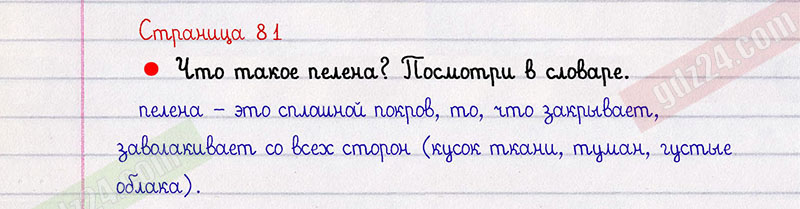 Страница 81
• Что такое пелена? Посмотри в словаре.
пелена – это сплошной покров, то, что закрывает,
заволакивает со всех сторон (кусок ткани, туман, густые
облака).
gdz24.com
gdz24.com